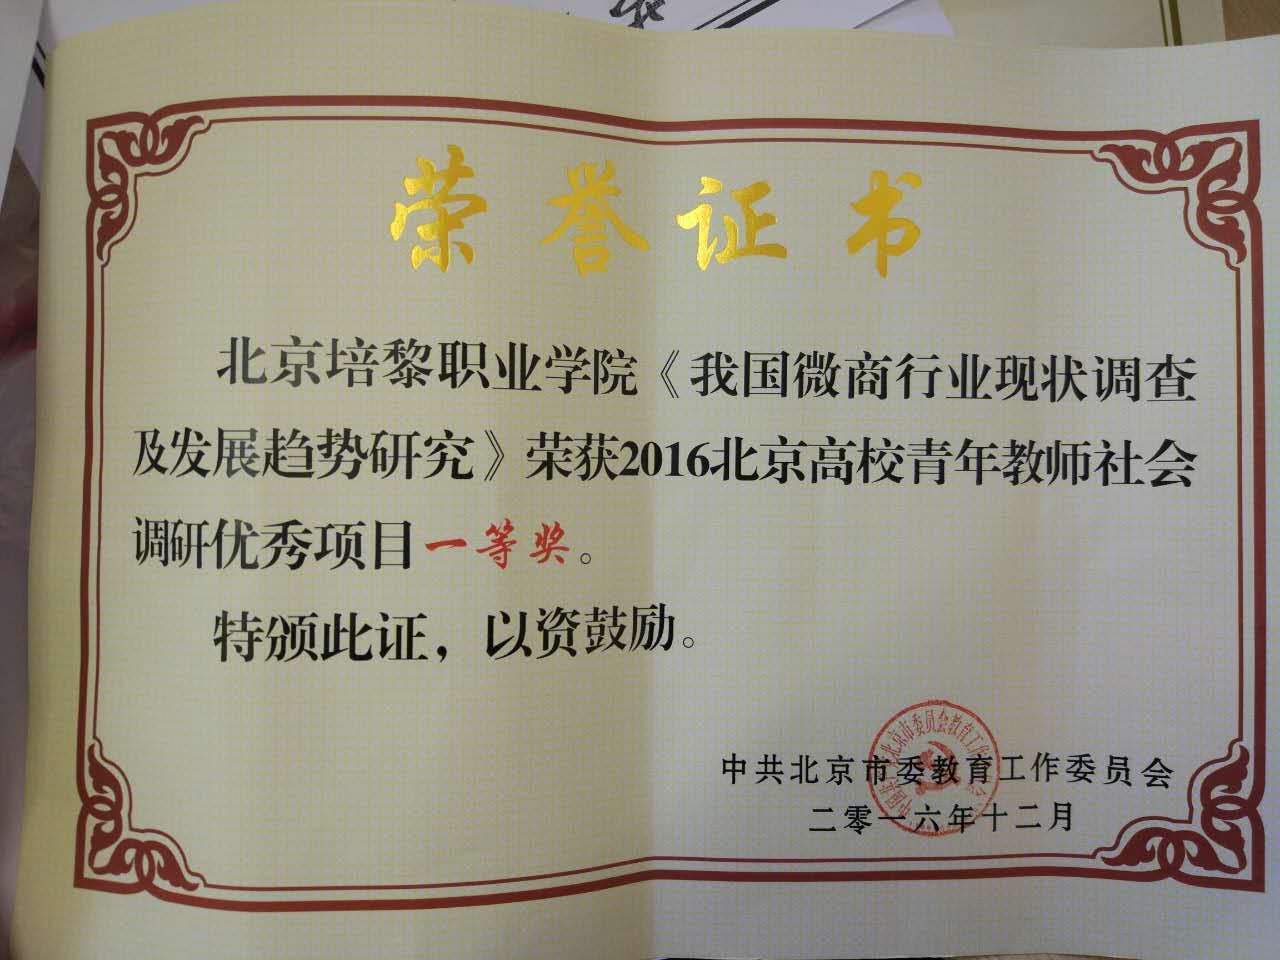 荣誉证书
北京培黎职业学院《我国微商行业现状调查
及发展趋势研究》荣获2016北京高校青年教师社会
调研优秀项目一等奖。
特颁此证，以资鼓励。
中共北京市委教育工作委员会
二零一六年十二月